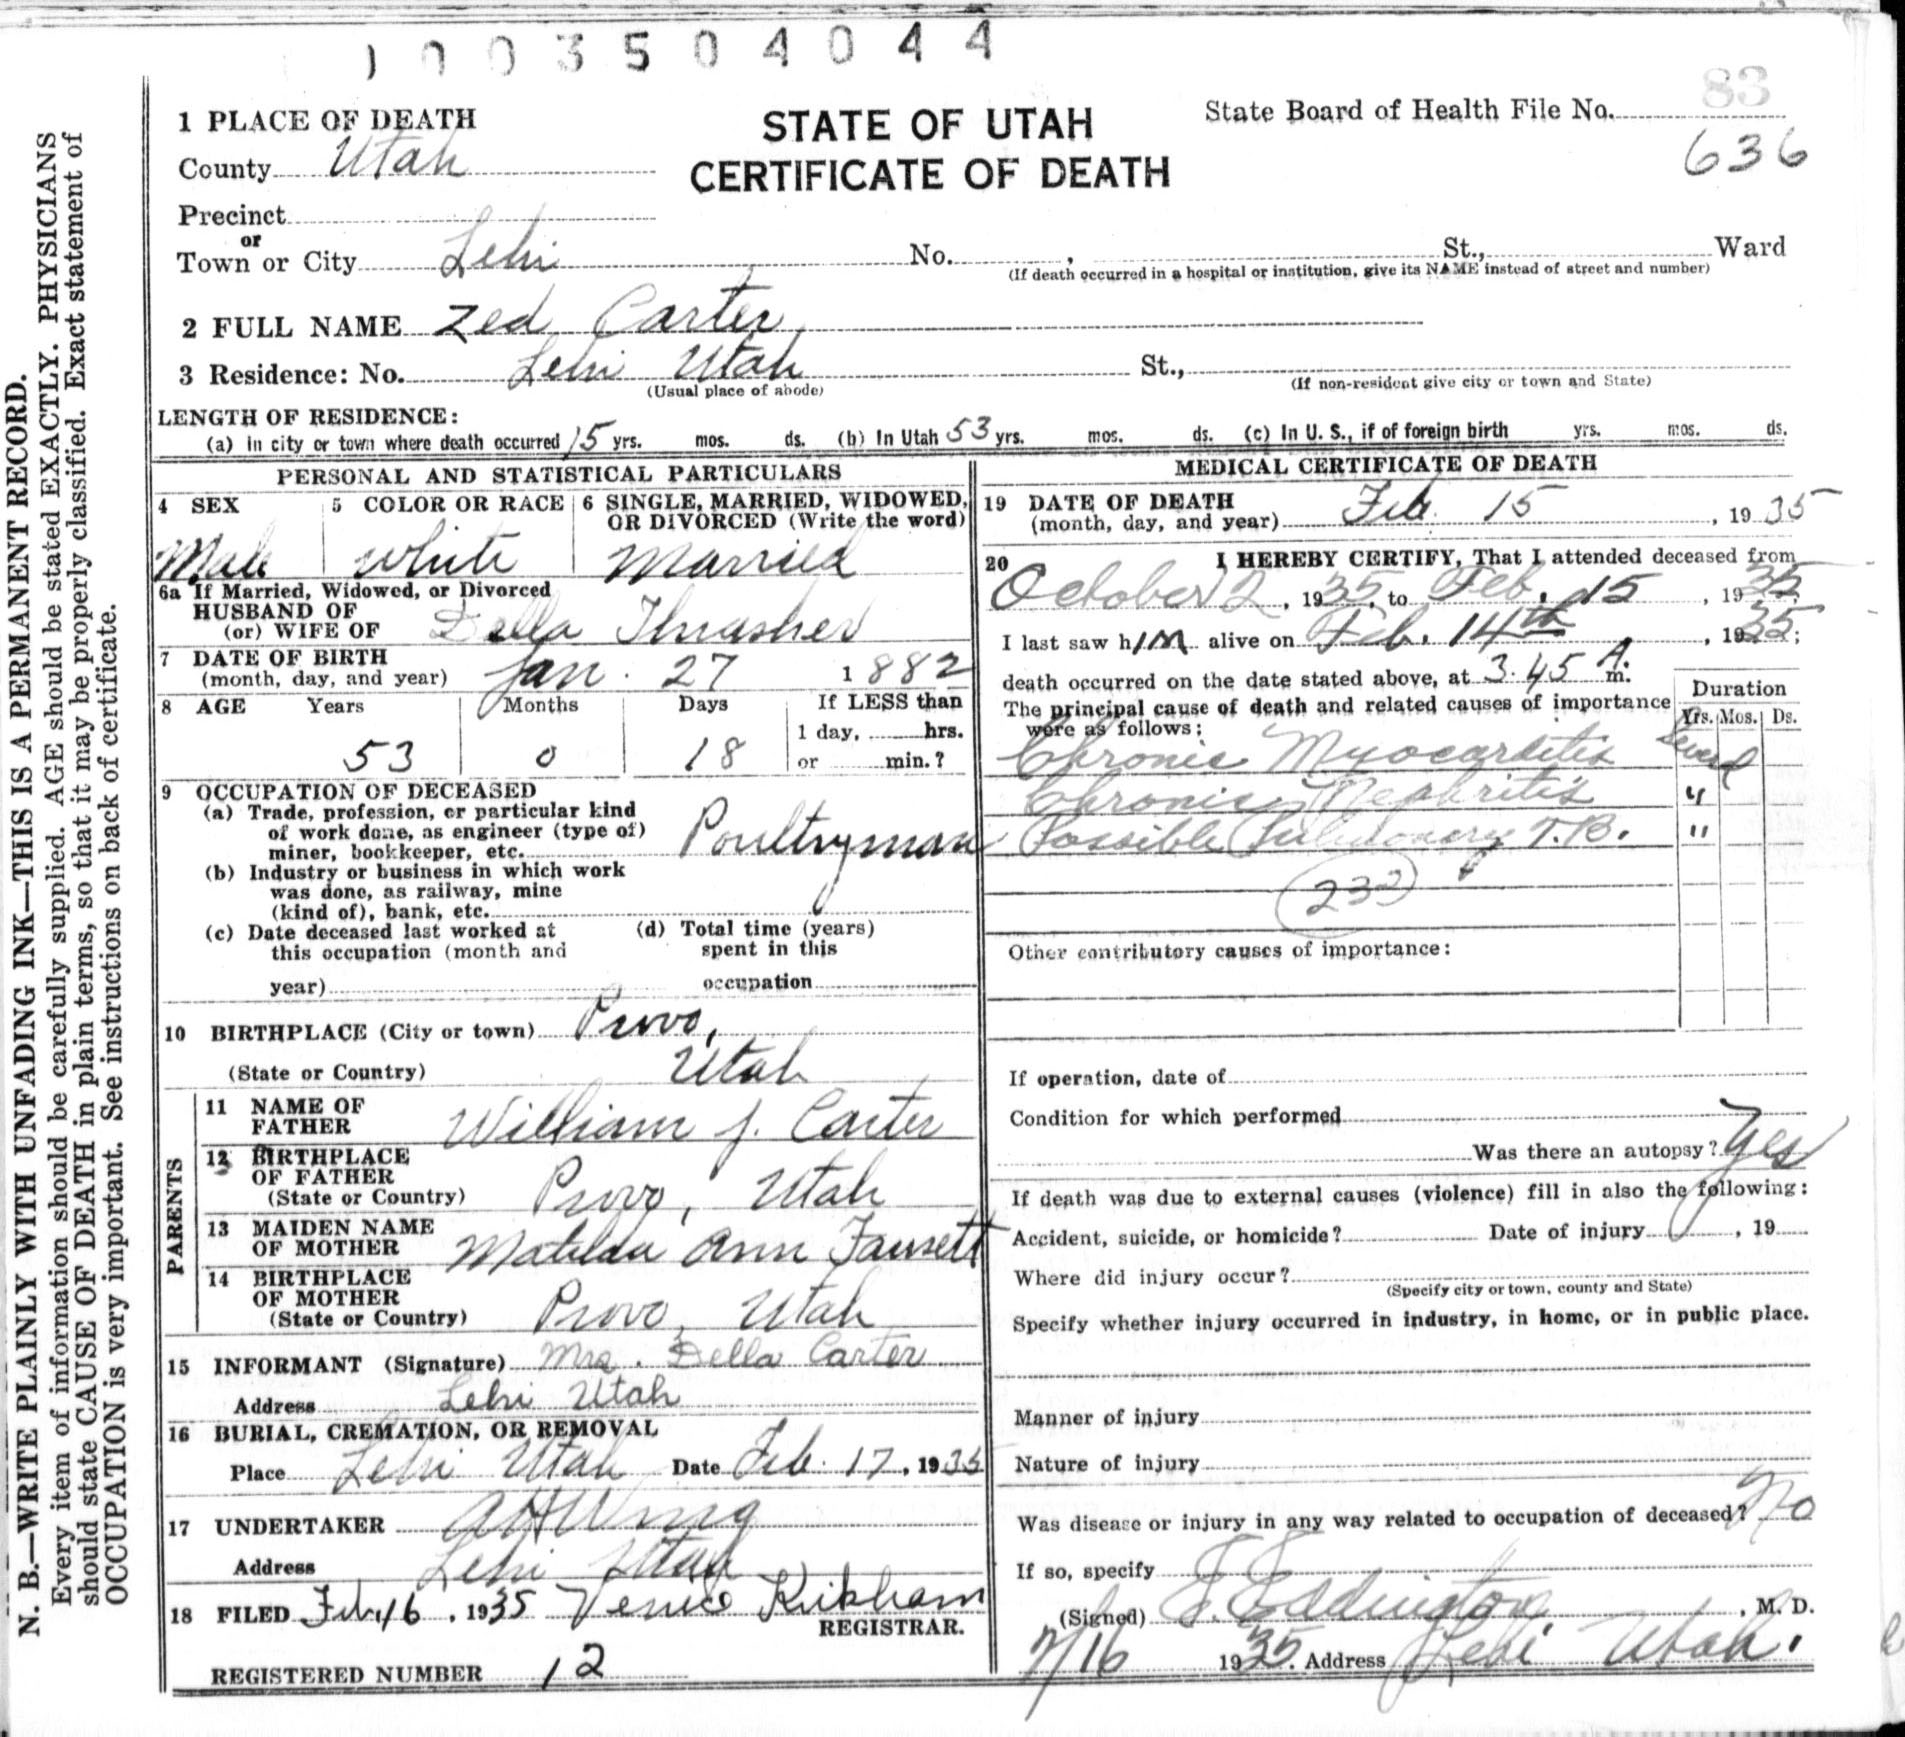 1003504044
83
1 PLACE OF DEATH
STATE OF UTAH
CERTIFICATE OF DEATH
State Board of Health File No.
636
County Utah
Precinct
or
Town or City Lehi No. , St., Ward
(If death occurred in a hospital or institution, give its NAME instead of street and number)
2 FULL NAME Zed Carter
3 Residence: No. Lehi Utah St.,
(Usual place of abode) (If non-resident give city or town and State)
LENGTH OF RESIDENCE:
(a) In city or town where death occurred 15 yrs. mos. ds. (b) In Utah 53 yrs. mos. ds. (c) In U. S., if of foreign birth yrs. mos. ds.
PERSONAL AND STATISTICAL PARTICULARS
4 SEX 5 COLOR OR RACE 6 SINGLE, MARRIED, WIDOWED,
OR DIVORCED (Write the word)
Male white Married
6a If Married, Widowed, or Divorced
HUSBAND OF
(or) WIFE OF Della Thrasher
7 DATE OF BIRTH
(month, day, and year) Jan. 27 1882
8 AGE Years Months Days If LESS than
1 day, hrs.
53 0 18 or min.?
9 OCCUPATION OF DECEASED
(a) Trade, profession, or particular kind
of work done, as engineer (type of)
miner, bookkeeper, etc. Poultryman
(b) Industry or business in which work
was done, as railway, mine
(kind of), bank, etc.
(c) Date deceased last worked at (d) Total time (years)
this occupation (month and spent in this
year) occupation
10 BIRTHPLACE (City or town) Provo,
(State or Country) Utah
PARENTS
11 NAME OF
FATHER William J. Carter
12 BIRTHPLACE
OF FATHER
(State or Country) Provo, Utah
13 MAIDEN NAME
OF MOTHER Matilda Ann Fausett
14 BIRTHPLACE
OF MOTHER
(State or Country) Provo, Utah
15 INFORMANT (Signature) Mrs. Della Carter
Address Lehi Utah
16 BURIAL, CREMATION, OR REMOVAL
Place Lehi Utah Date Feb. 17, 1935
17 UNDERTAKER A H Wing
Address Lehi Utah
18 FILED Feb. 16, 1935 Venice Kirkham
REGISTRAR.
REGISTERED NUMBER 12
MEDICAL CERTIFICATE OF DEATH
19 DATE OF DEATH
(month, day, and year) Feb. 15, 1935
20 I HEREBY CERTIFY, That I attended deceased from
October 2, 1935, to Feb. 15, 1935
I last saw h im alive on Feb. 14th, 1935;
death occurred on the date stated above, at 3.45 A. m.
The principal cause of death and related causes of importance
were as follows:
Duration
Yrs. Mos. Ds.
Chronic Myocarditis Several
Chronic Nephritis "
Possible Pulmonary T.B. "
232
Other contributory causes of importance:
If operation, date of
Condition for which performed
Was there an autopsy? Yes
If death was due to external causes (violence) fill in also the following:
Accident, suicide, or homicide? Date of injury , 19
Where did injury occur?
(Specify city or town, county and State)
Specify whether injury occurred in industry, in home, or in public place.
Manner of injury
Nature of injury
Was disease or injury in any way related to occupation of deceased? No
If so, specify
(Signed) Eddington, M. D.
2/16 1935. Address Lehi Utah.
N. B.—WRITE PLAINLY WITH UNFADING INK—THIS IS A PERMANENT RECORD.
Every item of information should be carefully supplied. AGE should be stated EXACTLY. PHYSICIANS
should state CAUSE OF DEATH in plain terms, so that it may be properly classified. Exact statement of
OCCUPATION is very important. See instructions on back of certificate.